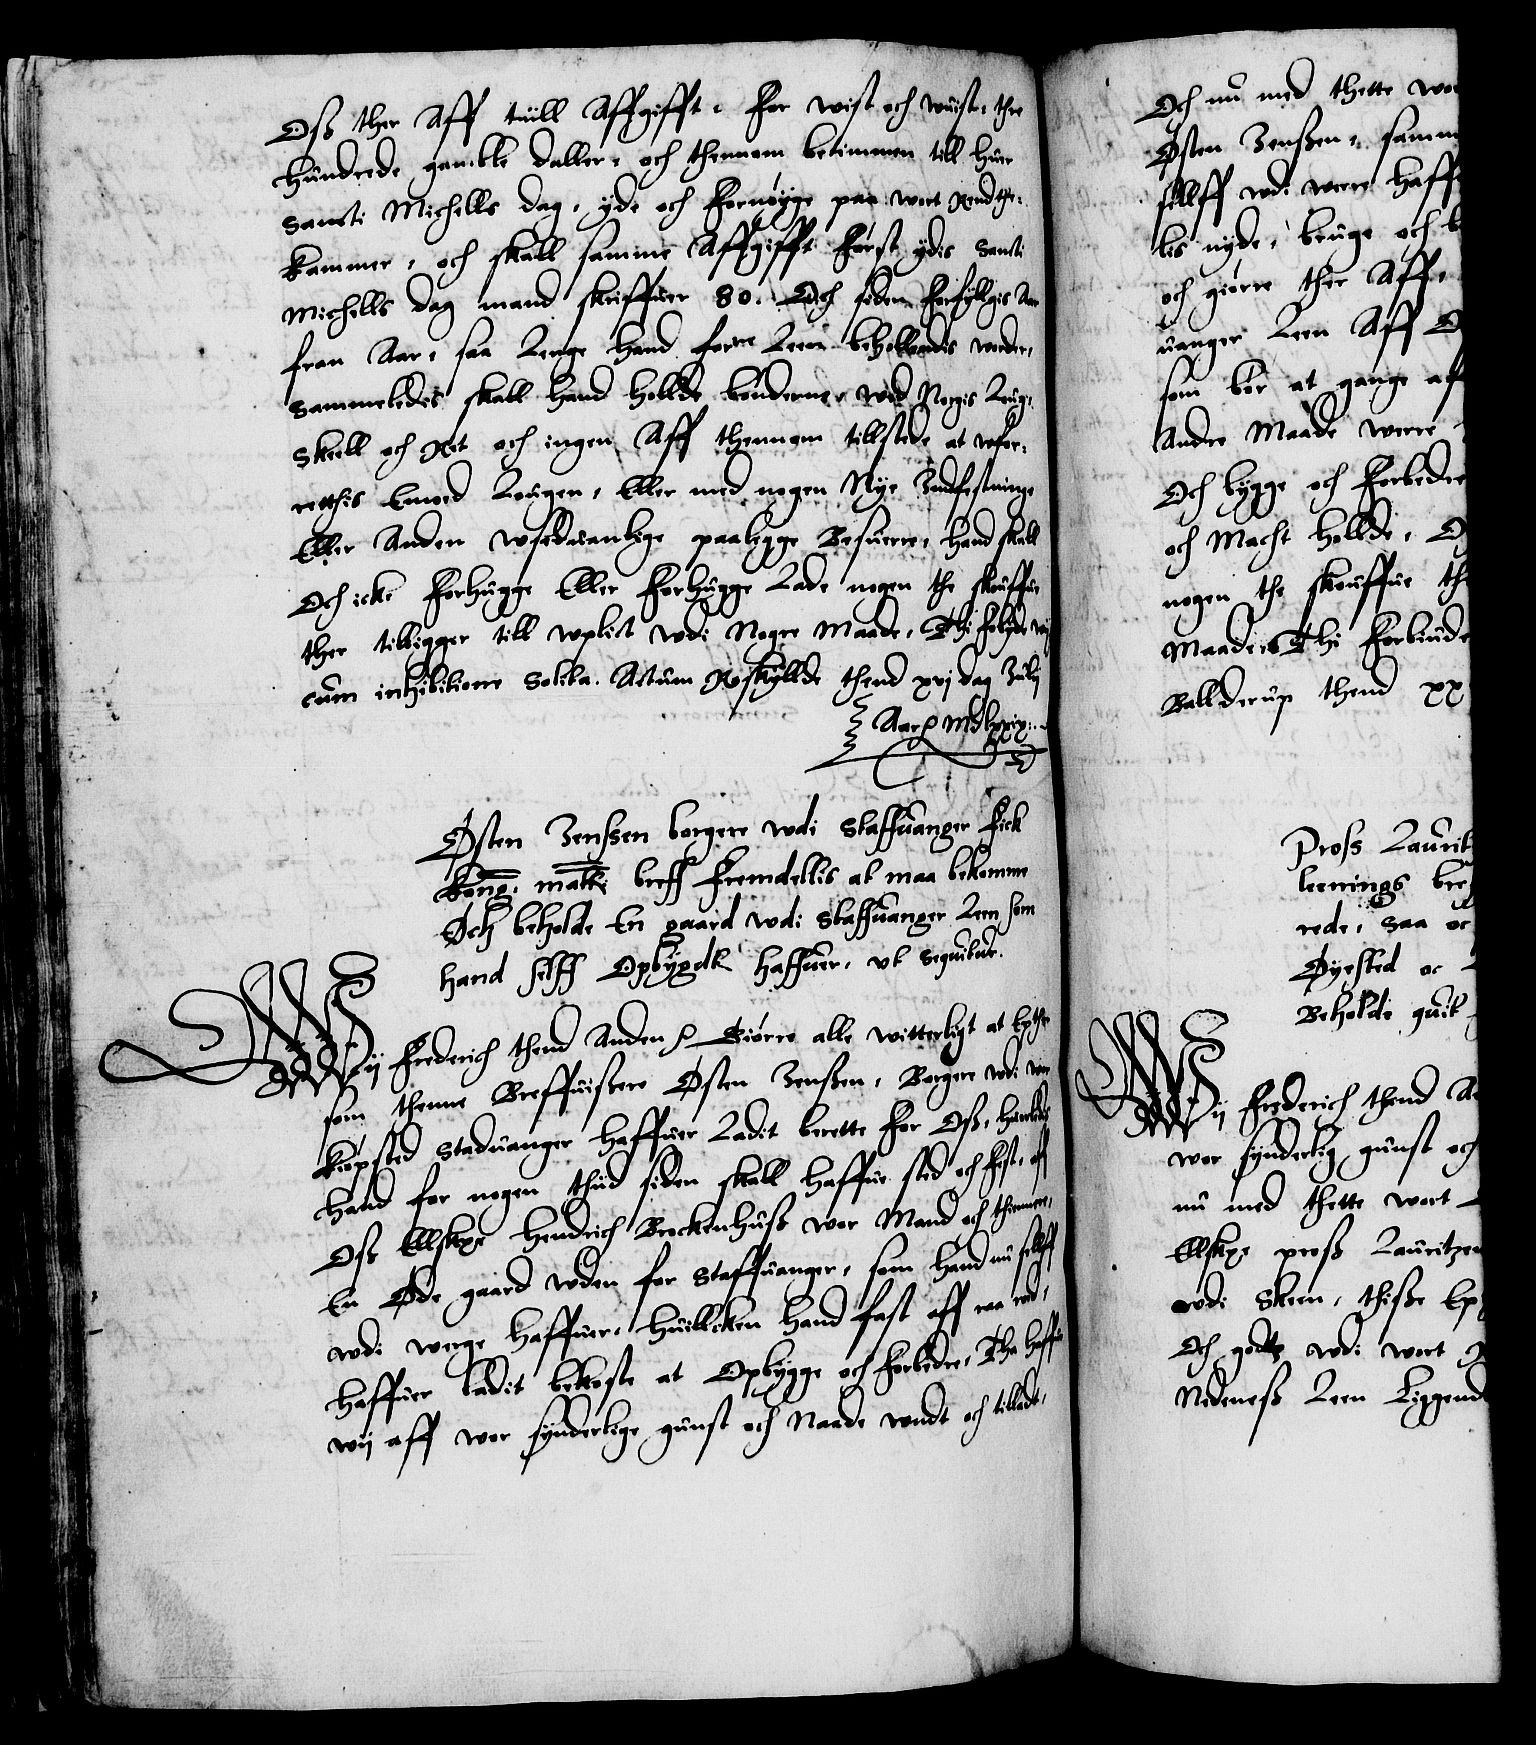 Oss ther Aff tiill Affgifft, for wist och wuist, thre
hundrede gamble daller, och thennom betimmen till huer
Sancti Michells dag, yde och fornøyge paa wort Rendthe-
kammer, och skall samme Affgifft først ydis Sancti
Michells dag mand skriffuer 80. Och siden forfyllgis Aar
fran Aar, saa Lenge hand forne Leen beholdendis worder,
Sammeledis skall hand holde bønderne, wed Norgis Loug,
Skell och Ret och ingen Aff thennom tillstede at wfor-
retthis Emod Lougen, Eller med nogen Nye Indfestninge
Eller Anden wsedwanlige paalegge Besuerre, hand skall
Och icke forhugge Eller forhugge Lade nogen the skouffue
ther tilligger till wplict wdi Nogre Maade, Thi forbiude wij
cum inhibitione Solita. Actum Roskyllde thend xvj dag Julij
Aar mdlxxix.
Østen Jenssen borgere wdi Staffuanger fick
Kong. matts breff fremdellis at maa bekomme
Och beholde En gaard wdi Staffuanger Leen som
hand selff Opbygdt haffuer, ut sequitur.
Wij Frederich thend Anden Giørre alle witterligt at Epther
som thenne Breffuissere Østen Jenssen, Borgere wdi wor
Kiøpsted Staduanger haffuer Ladit berette for Oss, huorledis
hand for nogen thiid siden skall haffue sted och fest, aff
Oss Ellskge Hendrich Brockenhuss wor Mand och thiennere,
En Øde gaard wden for Staffuanger, som hand nu sellff
wdi werge haffuer, huillcken hand fast aff raa rod,
haffuer ladit bekoste at Opbygge och forbedre, Tha haffue
wij aff wor synderlige gunst och Naade wndt och tilladt,
Och nu med thette wor
Østen Jenssen, samm
sellff wdi were haff
lis nyde, bruge och b
och giørre ther Aff,
uanger Leen Aff O
som bør at gange af
Andre Maade werre
Och bygge och forbedre
och Macht hollde, O
nogen the skouffue th
Maade Thi forbiude
Ballderup thend xx
Pross Lauritz
leenings bre
rede, saa oc
Øyested oc
Beholde quit
Wij Frederich thend An
wor synderlig gunst och
nu med thette wort
Ellskge pross Lauritzen
wdi Skeen, thisse Ep
Och godtz wdi wort
Nedeness Leen Liggend